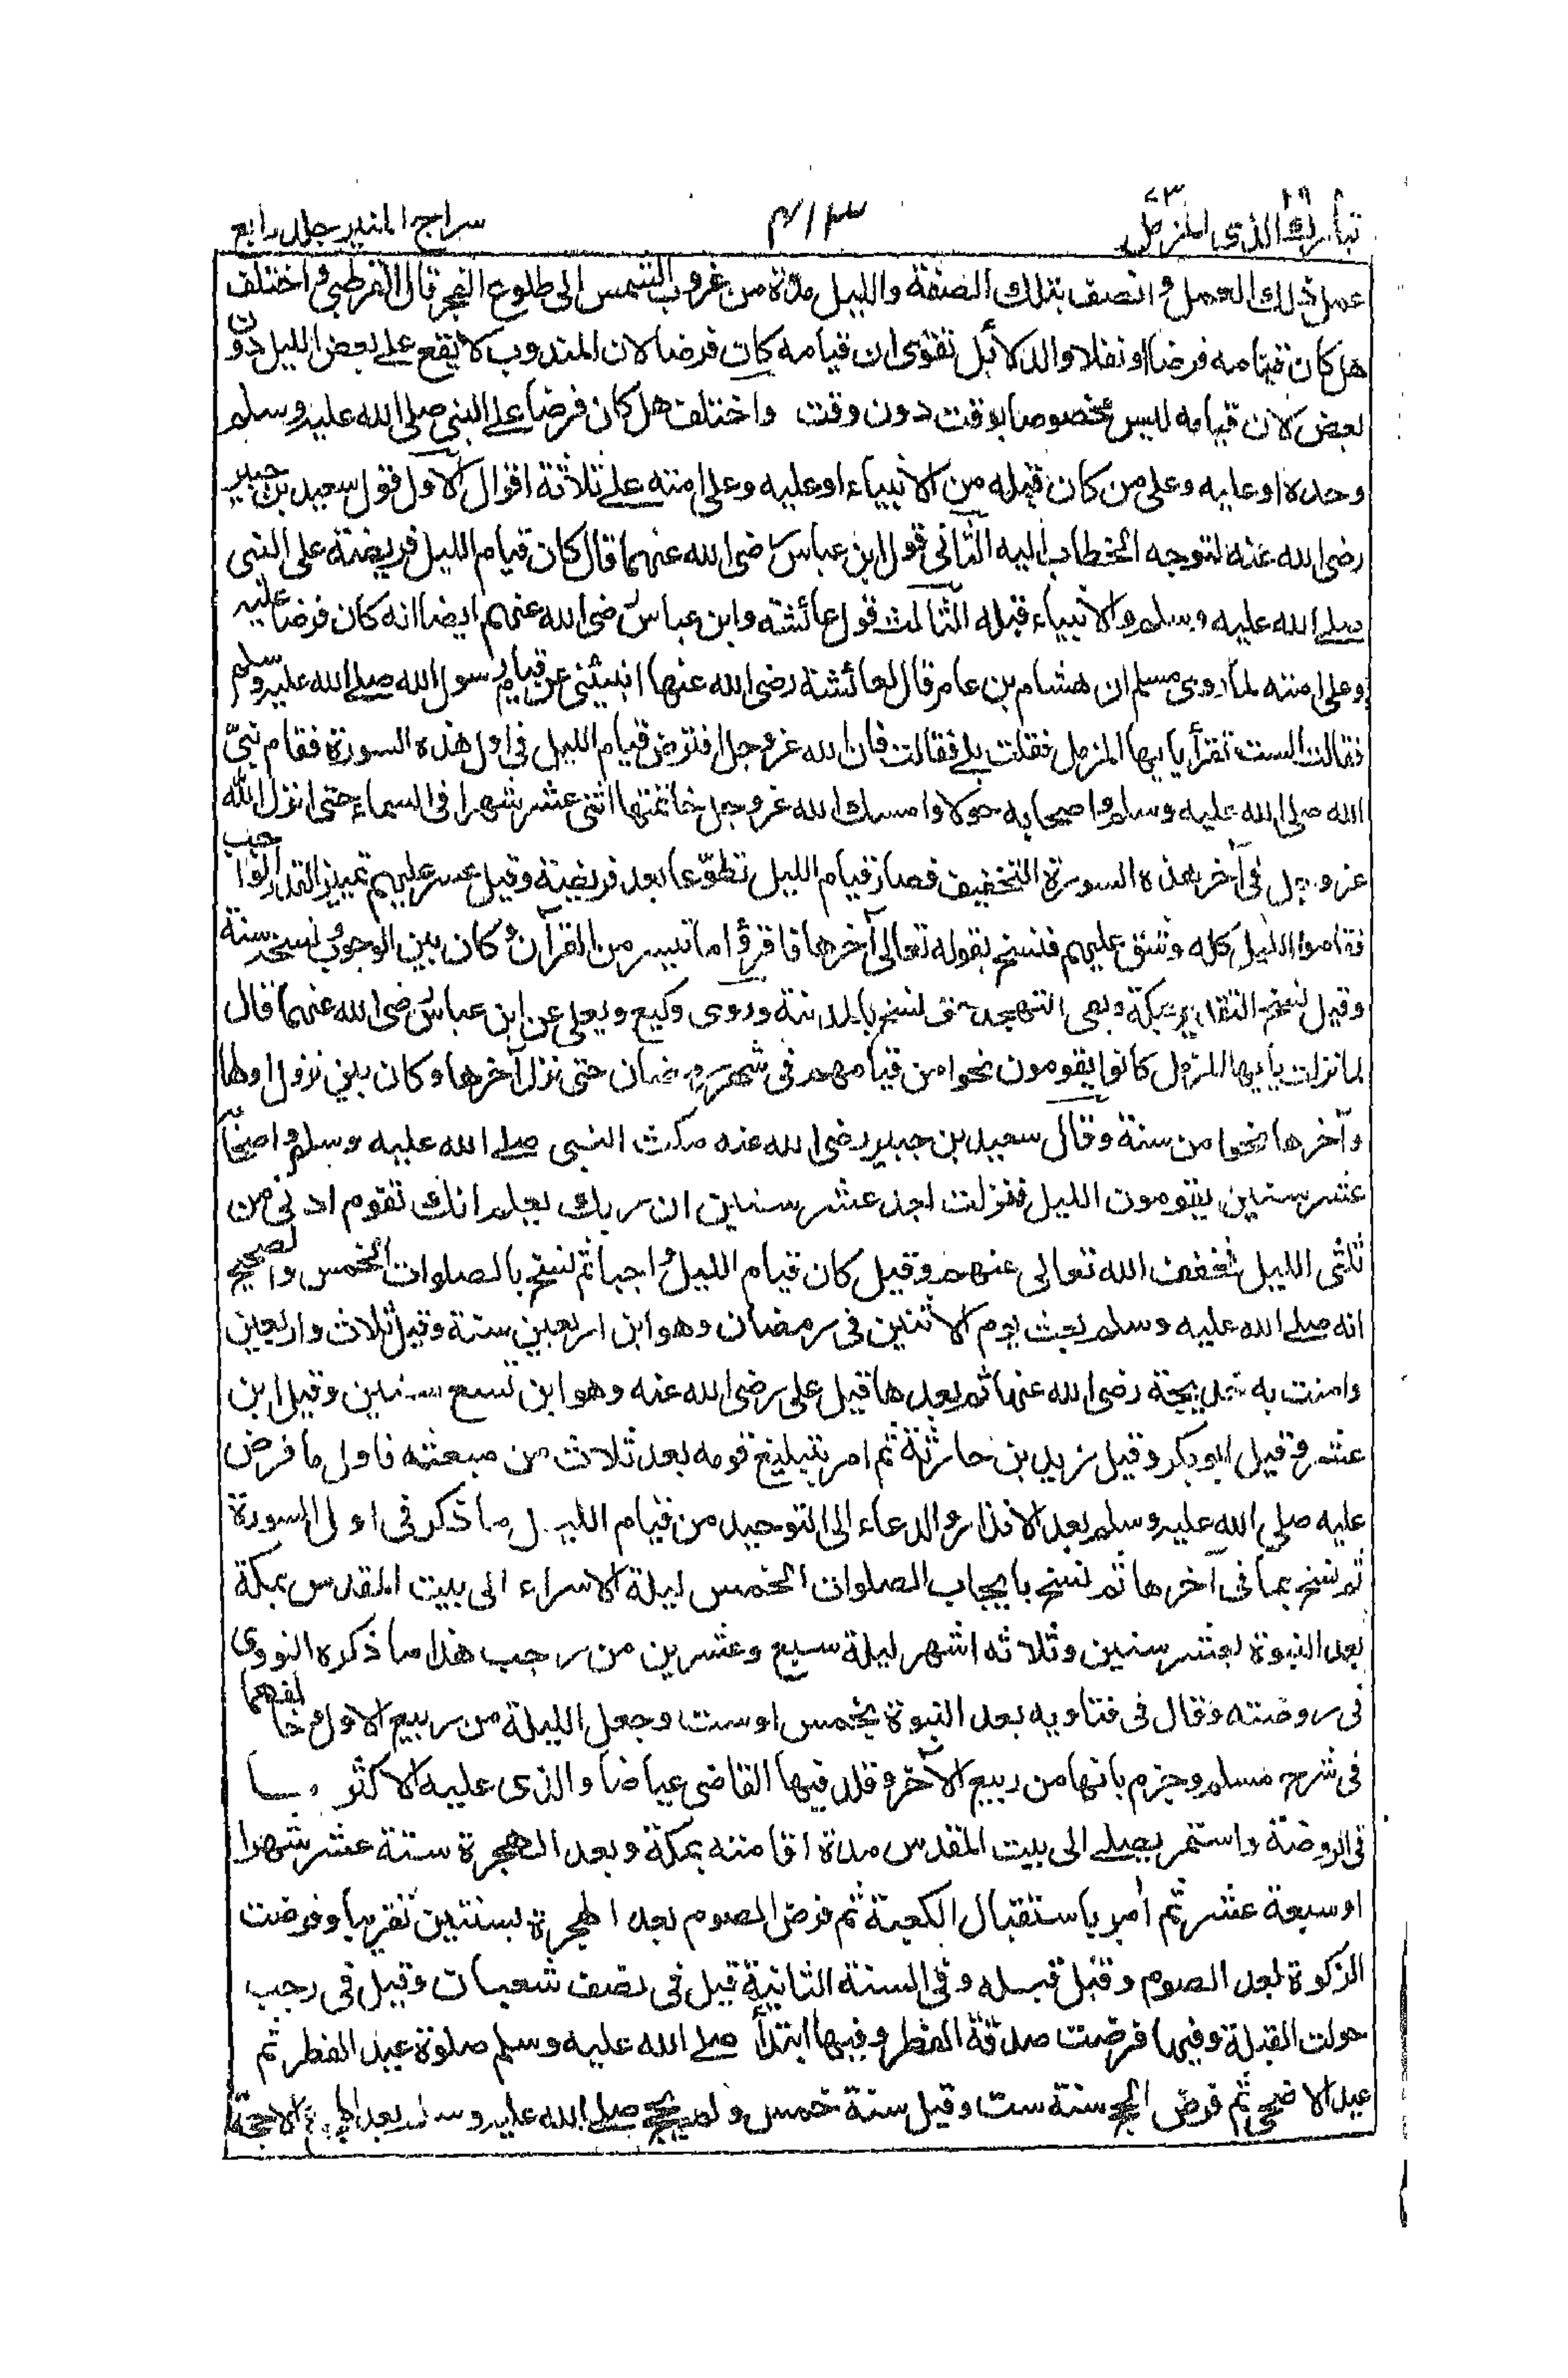 تبارك الذى ٢٩ المزمل ٧٣
٤١٣
سراج المنير جلد رابع
عمل ذلك العمل واتصف بتلك الصفة والليل مدة من غروب الشمس الى طلوع الفجر قال القرطبى واختلف
هل كان قيامه فرضا او نفلا والدلائل تقوى ان قيامه كان فرضا لان المندوب لا يقع على بعض الليل دون
بعض لان قيامه ليس مخصوصا بوقت دون وقت واختلف هل كان فرضا على النبى صلى الله عليه وسلم
وحده او عليه وعلى من كان قبله من الانبياء او عليه وعلى امته على ثلاثة اقوال الاول قول سعيد بن جبير
رضى الله عنه لتوجه الخطاب اليه الثانى قول ابن عباس رضى الله عنهما قال كان قيام الليل فريضة على النبى
صلى الله عليه وسلم والانبياء قبله الثالث قول عائشة وابن عباس رضى الله عنهم ايضا انه كان فرضا عليه
وعلى امته لما روى مسلم ان هشام بن عامر قال لعائشة رضى الله عنها انبئينى عن قيام رسول الله صلى الله عليه وسلم
فقالت الست تقرأ يا ايها المزمل فقلت بلى فقالت فان الله عز وجل افترض قيام الليل فى اول هذه السورة فقام نبىّ
الله صلى الله عليه وسلم واصحابه حولا وامسك الله عز وجل خاتمتها اثنى عشر شهرا فى السماء حتى انزل الله
عز وجل فى آخر هذه السورة التخفيف فصار قيام الليل تطوّعا بعد فريضة وقيل عسر عليهم تمييز القدر الواجب
فقاموا الليل كله وشق عليهم فنسخ بقوله تعالى آخرها فاقرؤا ما تيسر من القرآن وكان بين الوجوب ونسخه سنة
وقيل نسخ التقدير بمكة وبقى التهجد حتى نسخ بالمدينة وروى وكيع ويعلى عن ابن عباس رضى الله عنهما قال
لما نزلت يأيها المزمل كانوا يقومون نحوا من قيامهم فى شهر رمضان حتى نزل آخرها وكان بين نزول اولها
وآخرها نحوا من سنة وقال سعيد بن جبير رضى الله عنه مكث النبى صلى الله عليه وسلم واصحابه
عشر سنين يقومون الليل فنزلت بعد عشر سنين ان ربك يعلم انك تقوم ادنى من
ثلثى الليل فخفف الله تعالى عنهم وقيل كان قيام الليل واجبا ثم نسخ بالصلوات الخمس والصحيح
انه صلى الله عليه وسلم بعث يوم الاثنين فى رمضان وهو ابن اربعين سنة وقيل ثلاث واربعين
وامنت به خديجة رضى الله عنها ثم بعدها قيل على رضى الله عنه وهو ابن تسع سنين وقيل ابن
عشر وقيل ابو بكر وقيل زيد بن حارثة ثم امر بتبليغ قومه بعد ثلاث من مبعثه فاول ما فرض
عليه صلى الله عليه وسلم بعد الانذار والدعاء الى التوحيد من قيام الليل ما ذكر فى اول السورة
ثم نسخ بما فى آخرها ثم نسخ بايجاب الصلوات الخمس ليلة الاسراء الى بيت المقدس بمكة
بعد النبوة بعشر سنين وثلاثه اشهر ليلة سبع وعشرين من رجب هذا ما ذكره النووى
فى روضته وقال فى فتاويه بعد النبوة بخمس او ست وجعل الليلة من ربيع الاول وخالفهما
فى شرح مسلم وجزم بانها من ربيع الآخر وقلد فيها القاضى عياضا والذى عليه الاكثر ما
فى الروضة واستمر يصلى الى بيت المقدس مدة اقامته بمكة وبعد الهجرة ستة عشر شهرا
او سبعة عشر ثم امر باستقبال الكعبة ثم فرض الصوم بعد الهجرة بسنتين تقريبا وفرضت
الزكوة بعد الصوم وقيل قبله وفى السنة الثانية قيل فى نصف شعبان وقيل فى رجب
حولت القبلة وفيها فرضت صدقة الفطر وفيها ابتدأ صلى الله عليه وسلم صلوة عيد الفطر ثم
عيد الاضحى ثم فرض الحج سنة ست وقيل سنة خمس ولم يحج صلى الله عليه وسلم بعد الهجرة الاحجة